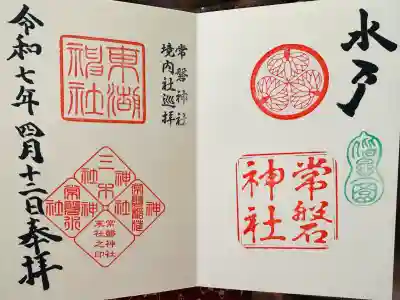 水戸
偕楽園
常磐
神社
常磐神社
境内社巡拝
東湖
神社
三木
神社
常磐稲荷
神社
常磐水
神社
常磐神社
末社之印
令和七年四月十二日奉拝